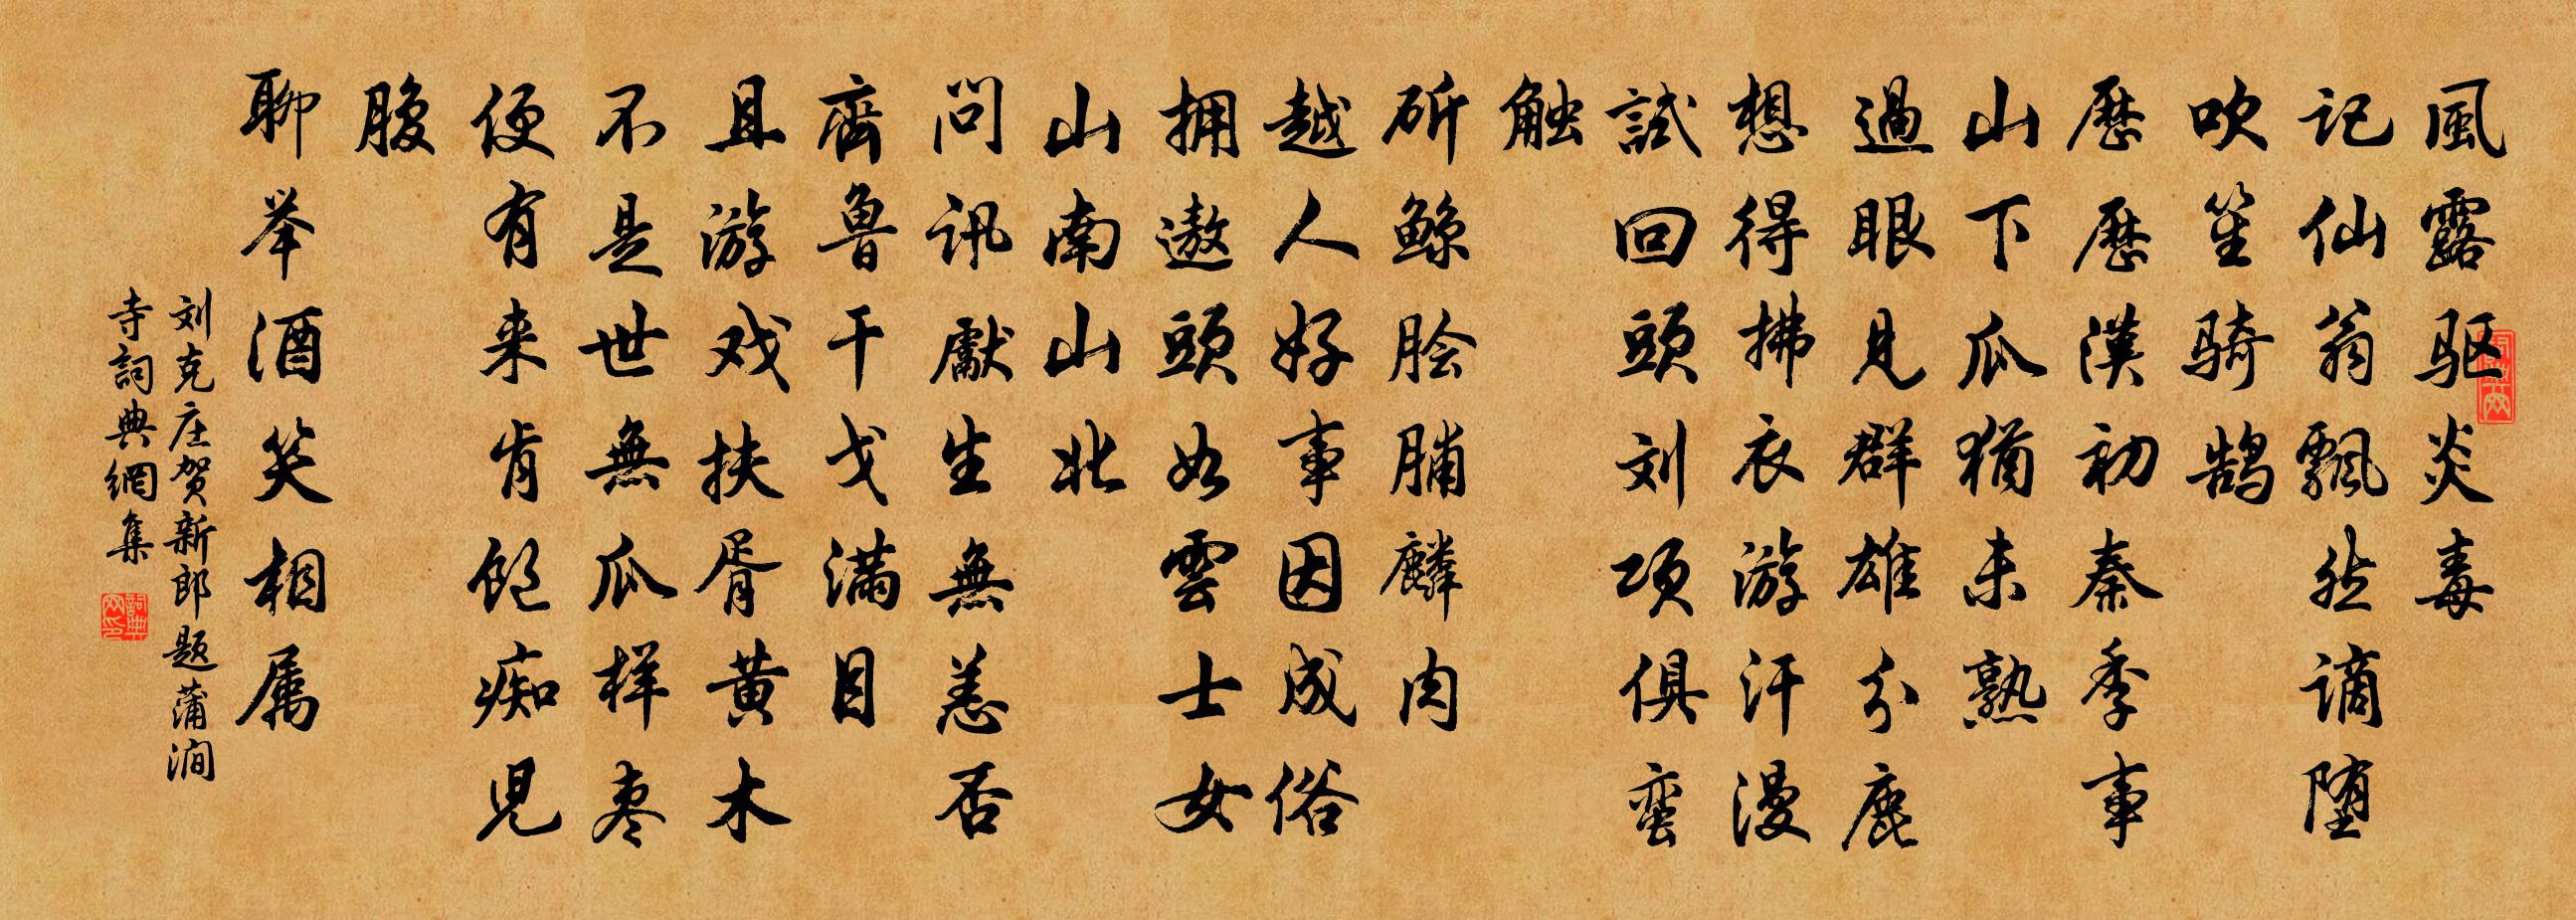 風露驱炎毒
记仙翁飘然谪堕
吹笙骑鹄
歷歷漢初秦季事
山下瓜猶未熟
過眼見群雄分鹿
想得拂衣游汗漫
試回頭刘项俱蛮
触
斫鲸脍脯麟肉
越人好事因成俗
拥遨頭如雲士女
山南山北
问讯獻生無恙否
齊鲁干戈满目
且游戏扶胥黄木
不是世無瓜样枣
便有来肯饱痴児
腹
聊举酒笑相属
刘克庄贺新郎题蒲涧
寺詞典網集
詞典网
詞典网印